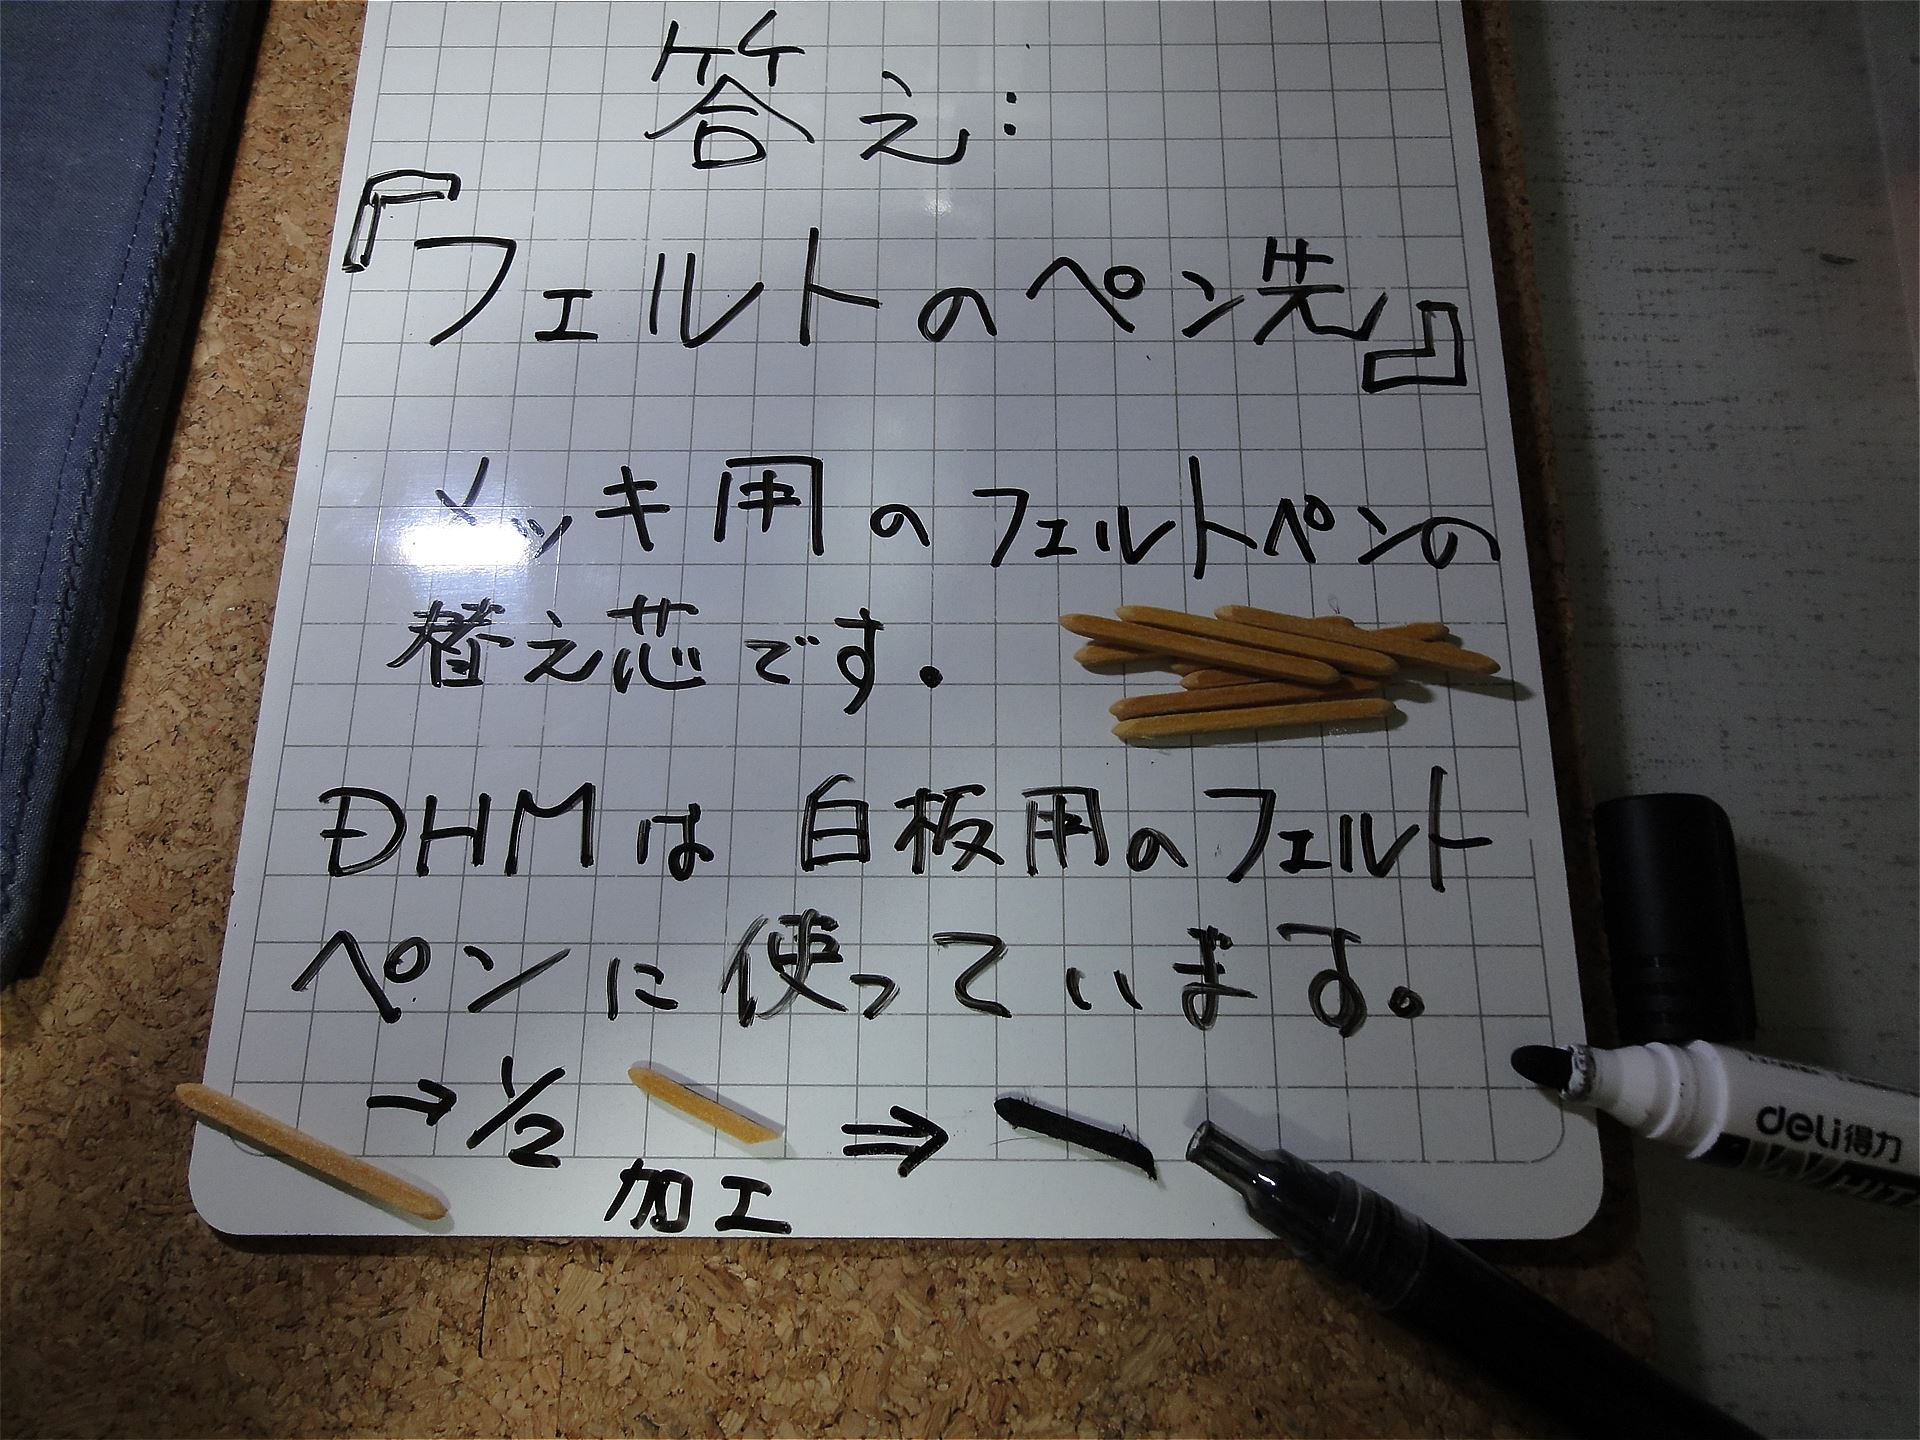 答え:
『フェルトのペン先』
メッキ用のフェルトペンの
替え芯です.
ĐHMは白板用のフェルト
ペンに使っています。
→1/2 ⇒
加工
deli得力
WHIT